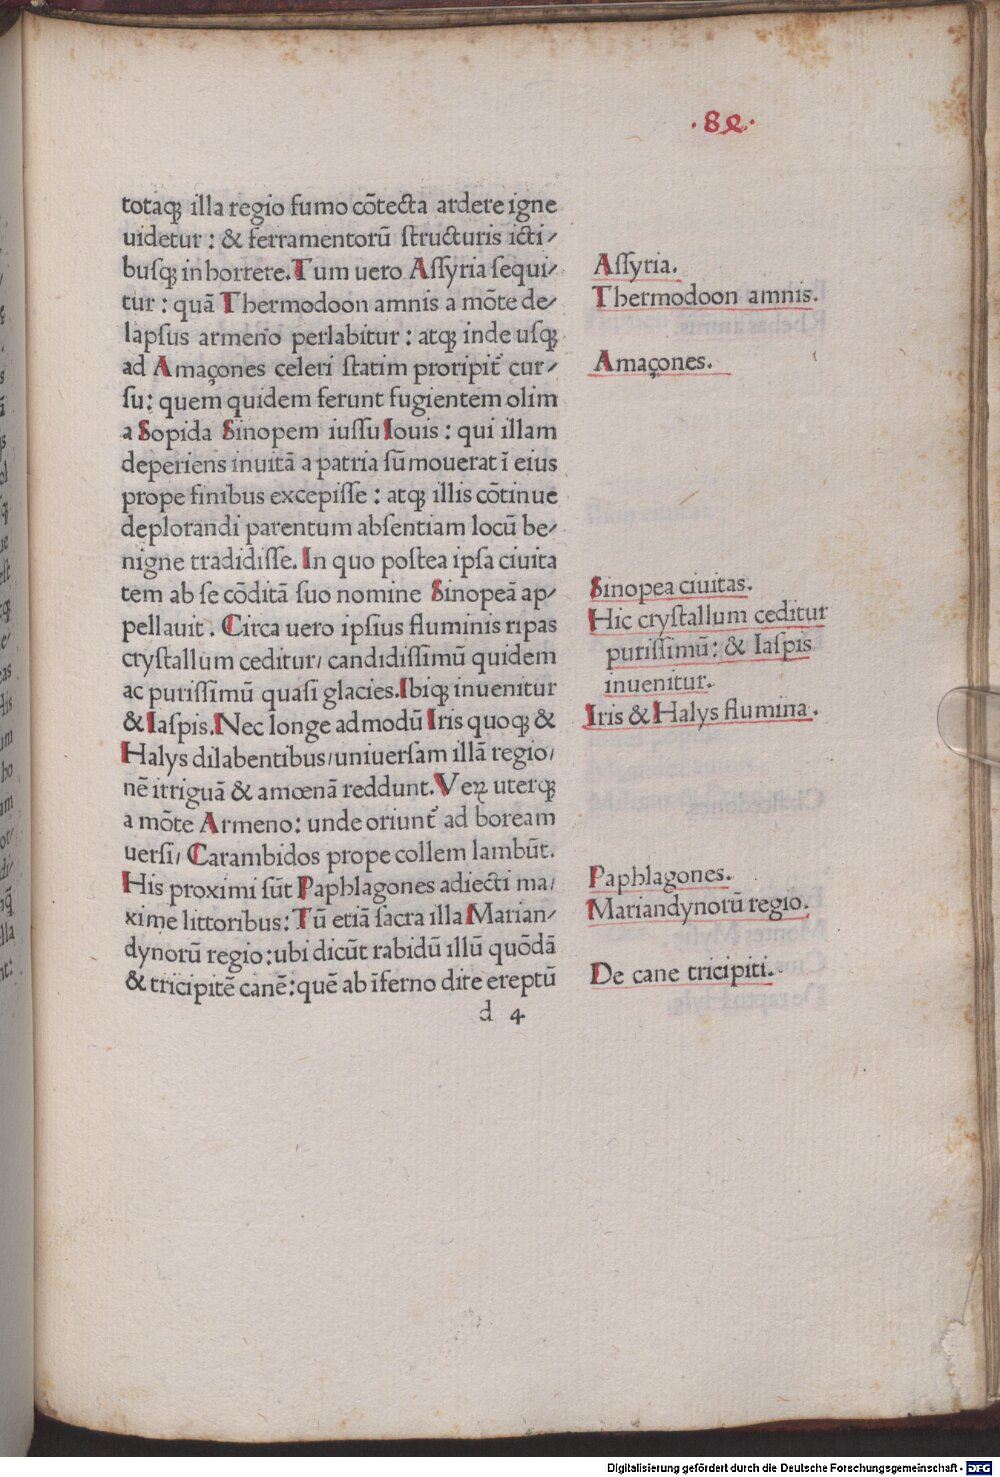 ·8e·
totaqꝫ illa regio fumo cõtecta ardere igne
uidetur : & ferramentorũ ſtructuris icti/
busqꝫ inhorrere. Tum uero Aſſyria ſequi/
tur : quã Thermodoon amnis a mõte de/
lapſus armeno perlabitur : atqꝫ inde uſqꝫ
ad Amaçones celeri ſtatim proripit᷑ cur/
ſu: quem quidem ferunt fugientem olim
a Sopida Sinopem iuſſu Iouis : qui illam
deperiens inuitã a patria ſũmouerat ĩ eius
prope finibus excepiſſe : atqꝫ illis cõtinue
deplorandi parentum abſentiam locũ be/
nigne tradidiſſe. In quo poſtea ipſa ciuita
tem ab ſe cõditã ſuo nomine Sinopeã ap/
pellauit. Circa uero ipſius fluminis ripas
cryſtallum ceditur/ candidiſſimũ quidem
ac puriſſimũ quaſi glacies. Ibiqꝫ inuenitur
& Iaſpis. Nec longe admodũ Iris quoqꝫ &
Halys dilabentibus/uniuerſam illã regio/
nẽ irriguã & amœnã reddunt. Veꝝ uterqꝫ
a mõte Armeno: unde oriunt᷑ ad boream
uerſi/ Carambidos prope collem lambũt.
His proximi ſũt Paphlagones adiecti ma/
xime littoribus: Tũ etiã ſacra illa Marian/
dynorũ regio: ubi dicũt rabidũ illũ quõdã
& tricipitẽ canẽ: quẽ ab ĩferno dite ereptũ
d 4
Aſſyria.
Thermodoon amnis.
Amaçones.
Sinopea ciuitas.
Hic cryſtallum ceditur
puriſſimũ: & Iaſpis
inuenitur.
Iris & Halys flumina.
Paphlagones.
Mariandynorũ regio.
De cane tricipiti.
Digitalisierung gefördert durch die Deutsche Forschungsgemeinschaft - DFG